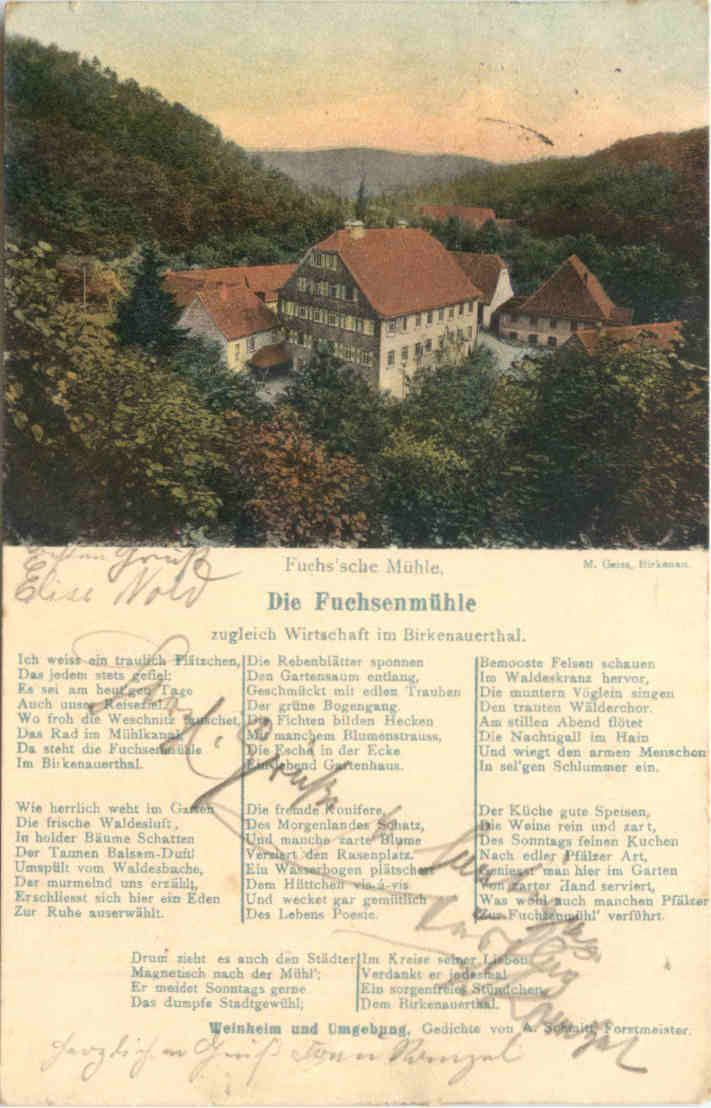 Gruß
Elise Nold
Fuchs'sche Mühle.
M. Geiss, Birkenau.
Die Fuchsenmühle
zugleich Wirtschaft im Birkenauerthal.
Ich weiss ein traulich Plätzchen,
Das jedem stets gefiel;
Es sei am heut'gen Tage
Auch unser Reiseziel.
Wo froh die Weschnitz rauschet,
Das Rad im Mühlkanal,
Da steht die Fuchsenmühle
Im Birkenauerthal.
Die Rebenblätter sponnen
Den Gartensaum entlang,
Geschmückt mit edlen Trauben
Der grüne Bogengang.
Die Fichten bilden Hecken
Mit manchem Blumenstrauss,
Die Esche in der Ecke
Ein lebend Gartenhaus.
Bemooste Felsen schauen
Im Waldeskranz hervor,
Die muntern Vöglein singen
Den trauten Wälderchor.
Am stillen Abend flötet
Die Nachtigall im Hain
Und wiegt den armen Menschen
In sel'gen Schlummer ein.
Wie herrlich weht im Garten
Die frische Waldesluft,
In holder Bäume Schatten
Der Tannen Balsam-Duft!
Umspült vom Waldesbache,
Der murmelnd uns erzählt,
Erschliesst sich hier ein Eden
Zur Ruhe auserwählt.
Die fremde Konifere,
Des Morgenlandes Schatz,
Und manche zarte Blume
Verziert den Rasenplatz.
Ein Wasserbogen plätschert
Dem Hüttchen vis-à-vis
Und wecket gar gemütlich
Des Lebens Poesie.
Der Küche gute Speisen,
Die Weine rein und zart,
Des Sonntags feinen Kuchen
Nach edler Pfälzer Art,
Geniesst man hier im Garten
Von zarter Hand serviert,
Was wohl auch manchen Pfälzer
Zur Fuchsenmühl' verführt.
Drum zieht es auch den Städter
Magnetisch nach der Mühl';
Er meidet Sonntags gerne
Das dumpfe Stadtgewühl;
Im Kreise seiner Lieben
Verdankt er jedesmal
Ein sorgenfreies Stündchen
Dem Birkenauerthal.
Weinheim und Umgebung, Gedichte von A. Schmitt, Forstmeister.
Herzlichen Gruß